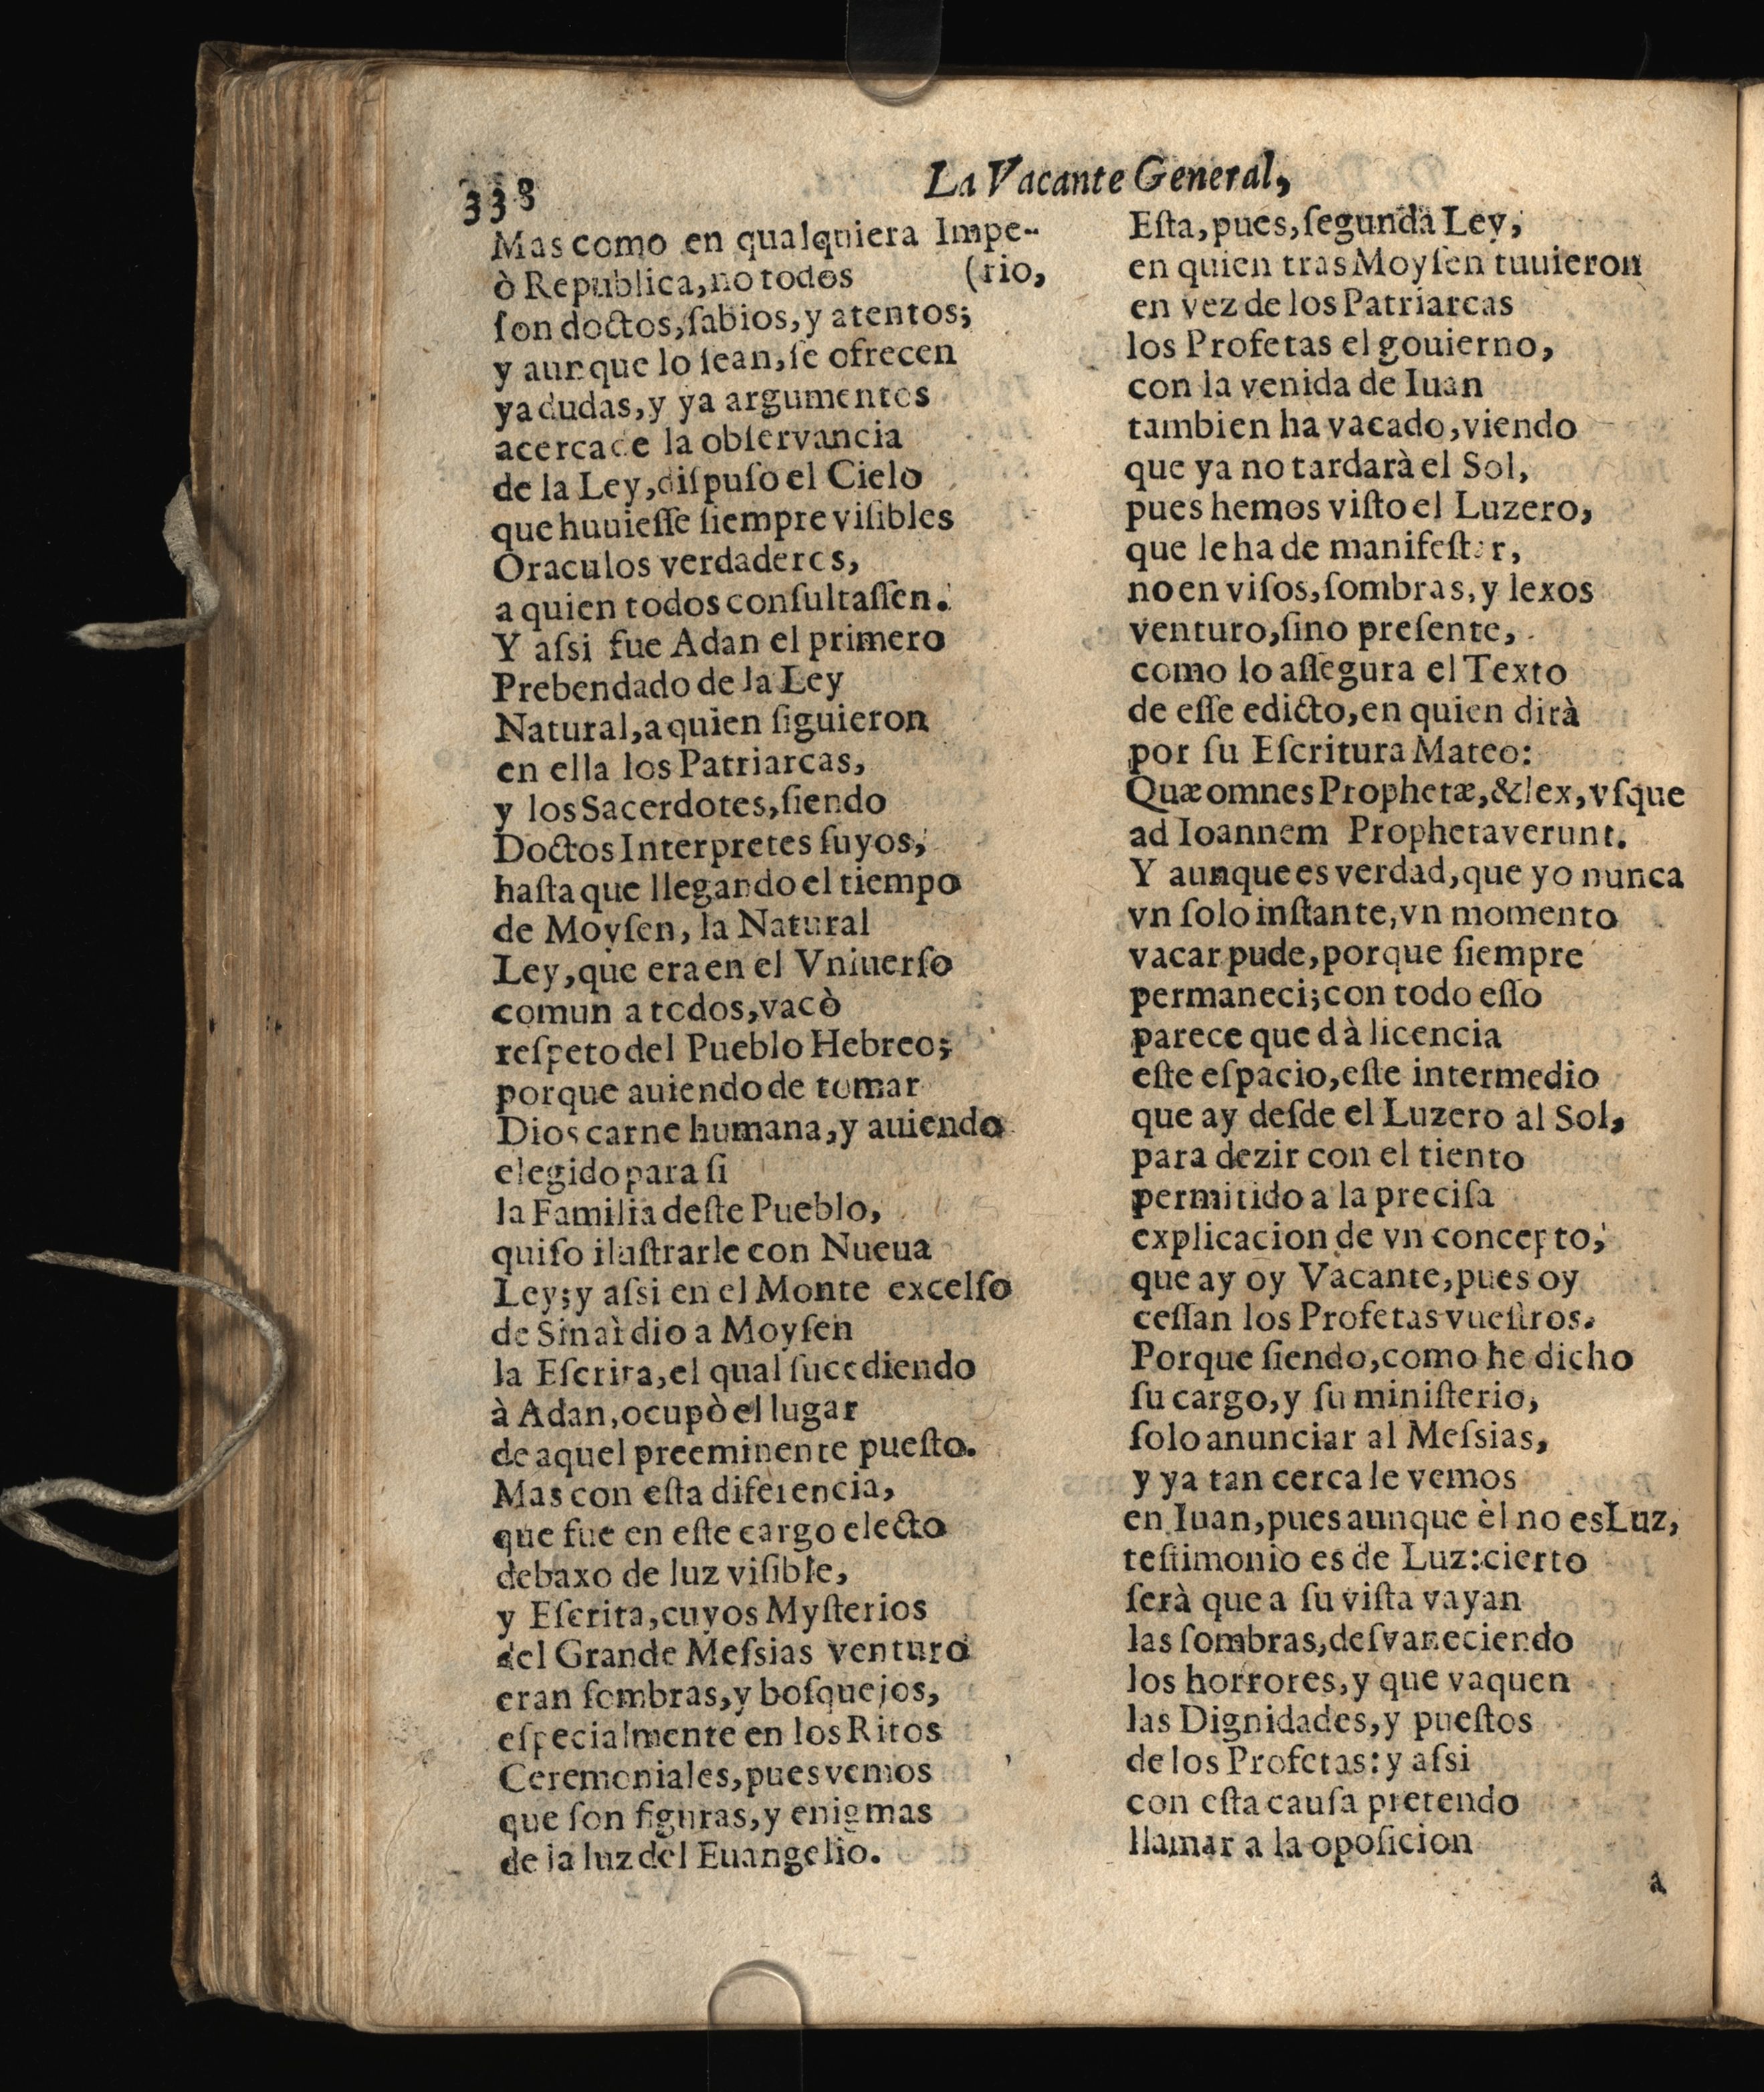 338
La Vacante General,
Mas como en qualquiera Impe-
ò Republica, no todos (rio,
ſon doctos, ſabios, y atentos;
y aunque lo ſean, ſe ofrecen
ya dudas, y ya argumentos
acerca de la obſervancia
de la Ley, diſpuſo el Cielo
que huuieſſe ſiempre viſibles
Oraculos verdaderos,
a quien todos conſultaſſen.
Y aſsi fue Adan el primero
Prebendado de la Ley
Natural, a quien ſiguieron
en ella los Patriarcas,
y los Sacerdotes, ſiendo
Doctos Interpretes ſuyos,
haſta que llegando el tiempo
de Moyſen, la Natural
Ley, que era en el Vniuerſo
comun a todos, vacò
reſpeto del Pueblo Hebreo;
porque auiendo de tomar
Dios carne humana, y auiendo
elegido para ſi
la Familia deſte Pueblo,
quiſo iluſtrarle con Nueua
Ley; y aſsi en el Monte excelſo
de Sinaì dio a Moyſen
la Eſcrita, el qual ſucediendo
à Adan, ocupò el lugar
de aquel preeminente pueſto.
Mas con eſta diferencia,
que fue en eſte cargo electo
debaxo de luz viſible,
y Eſcrita, cuyos Myſterios
del Grande Meſsias venturo
eran ſombras, y boſquejos,
eſpecialmente en los Ritos
Ceremoniales, pues vemos
que ſon figuras, y enigmas
de la luz del Euangelio.
Eſta, pues, ſegunda Ley,
en quien tras Moyſen tuuieron
en vez de los Patriarcas
los Profetas el gouierno,
con la venida de Iuan
tambien ha vacado, viendo
que ya no tardarà el Sol,
pues hemos viſto el Luzero,
que le ha de manifeſtar,
no en viſos, ſombras, y lexos
venturo, ſino preſente,
como lo aſſegura el Texto
de eſſe edicto, en quien dirà
por ſu Eſcritura Mateo:
Quæ omnes Prophetæ, & lex, vſque
ad Ioannem Prophetaverunt.
Y aunque es verdad, que yo nunca
vn ſolo inſtante, vn momento
vacar pude, porque ſiempre
permaneci; con todo eſſo
parece que dà licencia
eſte eſpacio, eſte intermedio
que ay deſde el Luzero al Sol,
para dezir con el tiento
permitido a la preciſa
explicacion de vn concepto,
que ay oy Vacante, pues oy
ceſſan los Profetas vueſtros.
Porque ſiendo, como he dicho
ſu cargo, y ſu miniſterio,
ſolo anunciar al Meſsias,
y ya tan cerca le vemos
en Iuan, pues aunque èl no es Luz,
teſtimonio es de Luz: cierto
ſerà que a ſu viſta vayan
las ſombras, deſvaneciendo
los horrores, y que vaquen
las Dignidades, y pueſtos
de los Profetas: y aſsi
con eſta cauſa pretendo
llamar a la opoſicion
a